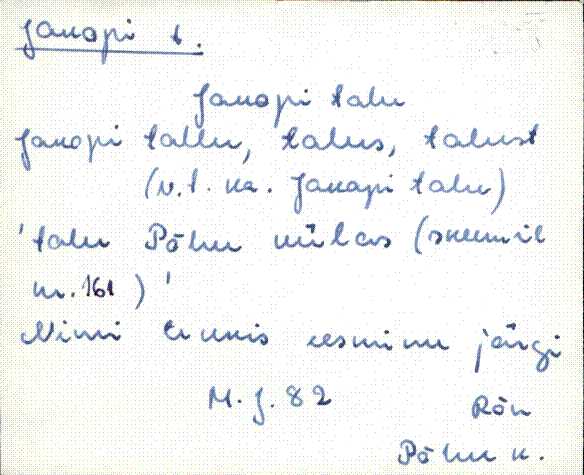 Jakopi t.
Jakopi talu
Jakopi tallu, talus, talust
(v.t. ka. Jakapi talu)
'talu Põhu külas (skeemil
nr. 161)'
Nimi tekkis eesnime järgi
M. J. 82 Rõn
Põhu k.